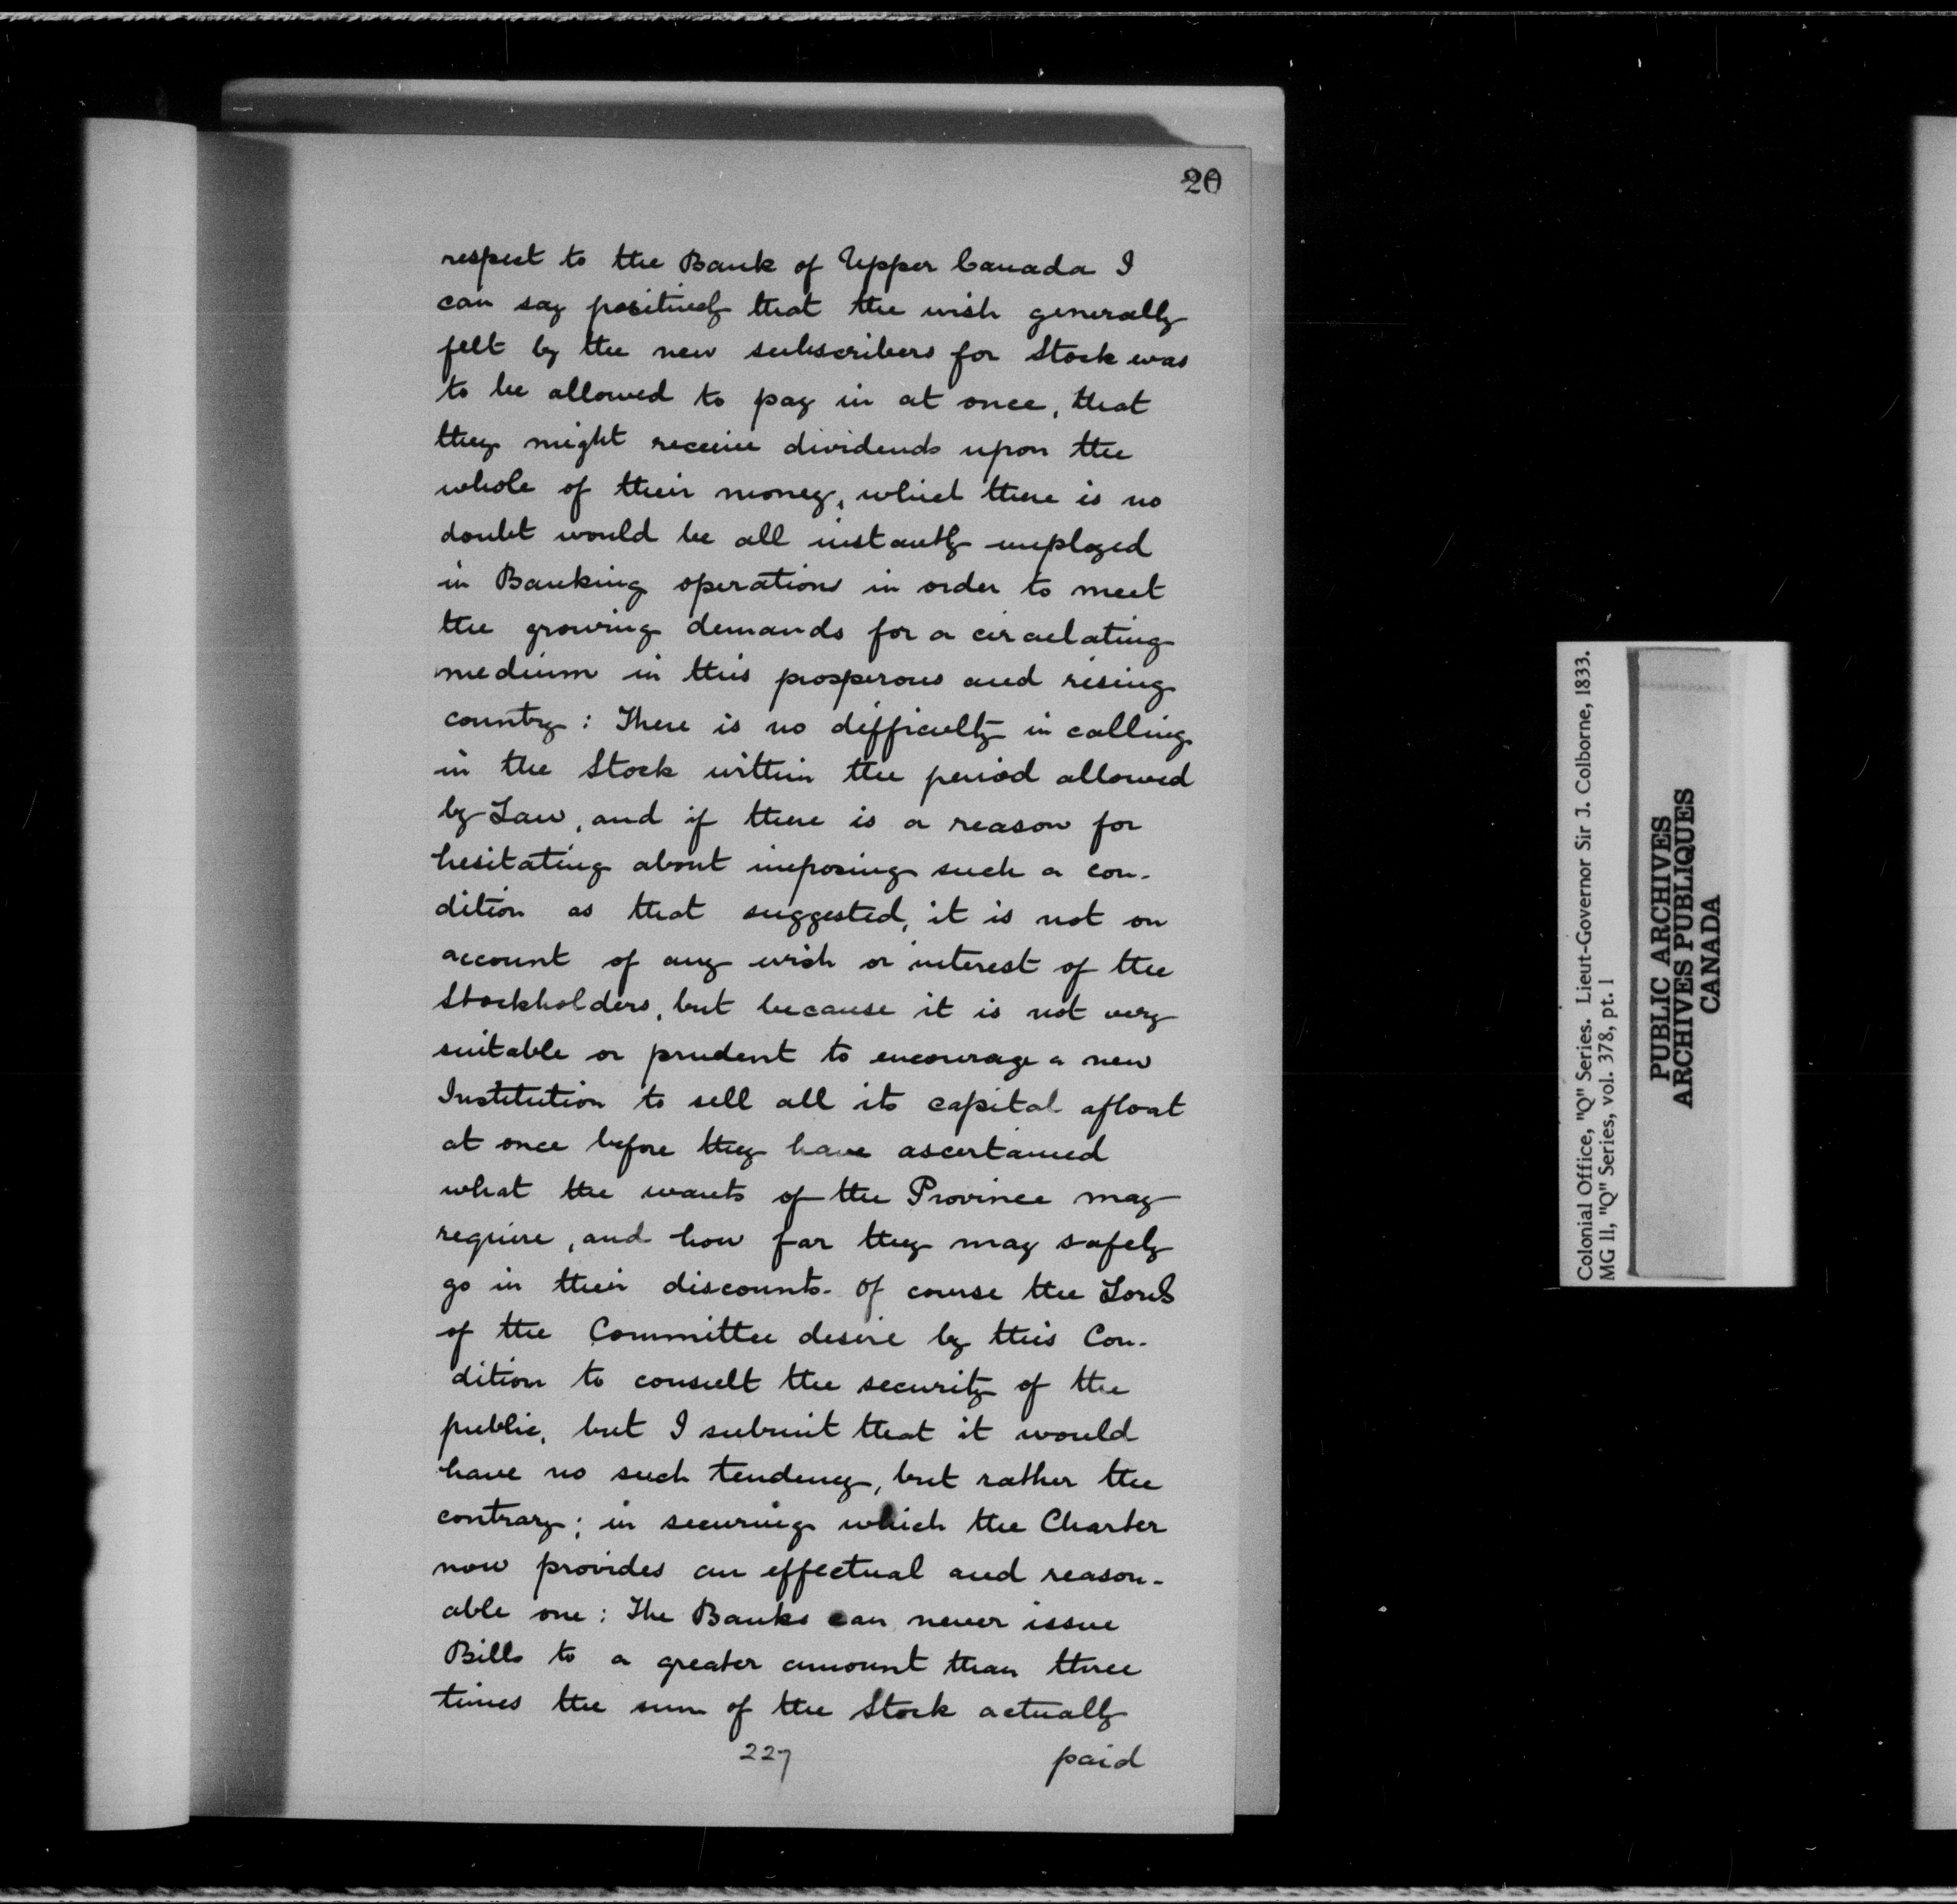 20
respect to the Bank of Upper Canada I
can say positively that the wish generally
felt by the new subscribers for Stock was
to be allowed to pay in at once, that
they might receive dividends upon the
whole of their money, which there is no
doubt would be all instantly employed
in Banking operations in order to meet
the growing demands for a circulating
medium in this prosperous and rising
country: There is no difficulty in calling
in the Stock within the period allowed
by Law, and if there is a reason for
hesitating about imposing such a con-
dition as that suggested, it is not on
account of any wish or interest of the
Stockholders, but because it is not very
suitable or prudent to encourage a new
Institution to sell all its capital afloat
at once before they have ascertained
what the wants of the Province may
require, and how far they may safely
go in their discounts. Of course the Lords
of the Committee desire by this Con-
dition to consult the security of the
public, but I submit that it would
have no such tendency, but rather the
contrary; in securing which the Charter
now provides an effectual and reason-
able one: The Banks can never issue
Bills to a greater amount than three
times the sum of the Stock actually
227 paid
Colonial Office, "Q" Series. Lieut-Governor Sir J. Colborne, 1833.
MG 11, "Q" Series, vol. 378, pt. 1
PUBLIC ARCHIVES
ARCHIVES PUBLIQUES
CANADA